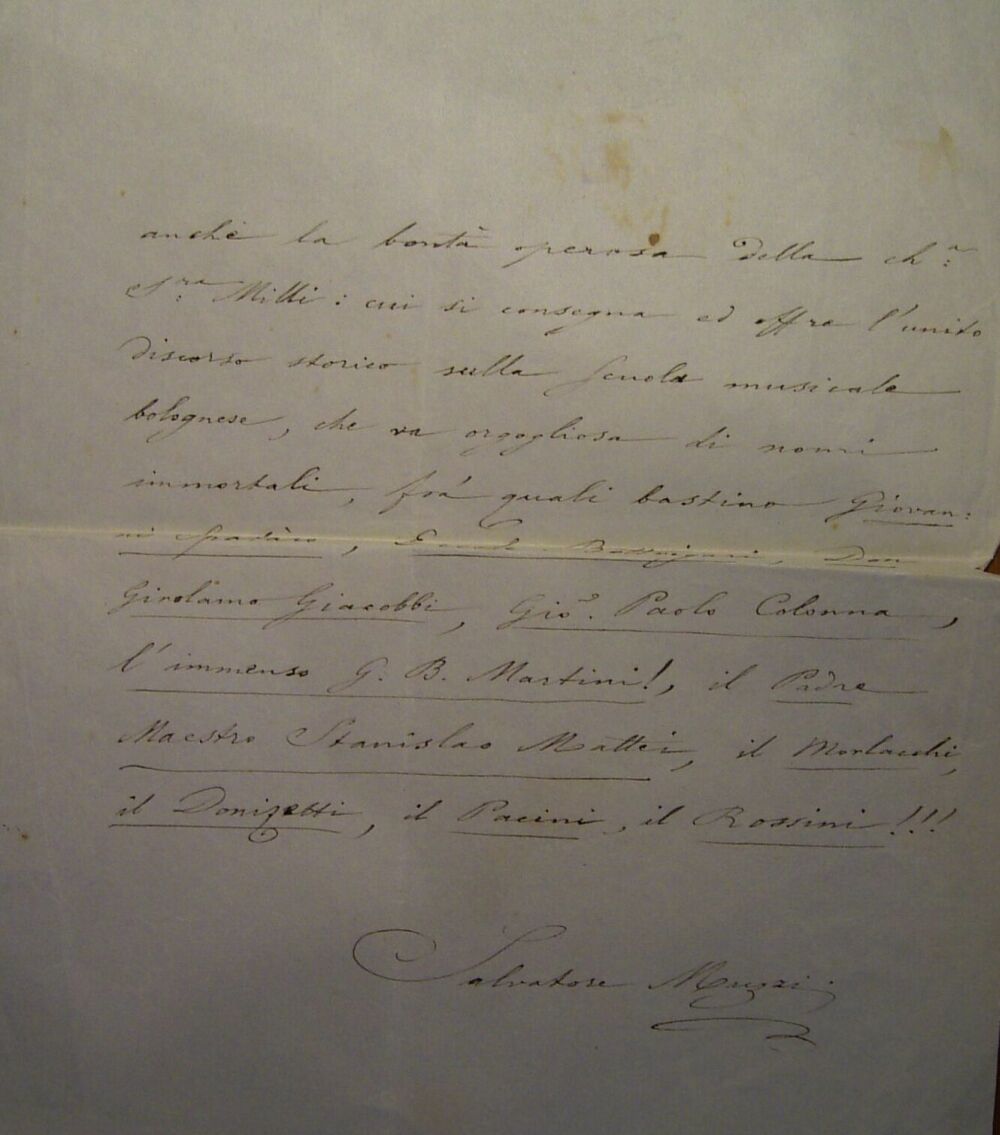 anche la bontà operosa della ch.ª
S.ra Milli: cui si consegna ed offre l'unito
discorso storico sulla scuola musicale
bolognese, che va orgogliosa di nomi
immortali, frà quali bastino Giovan:
ni Spadaro, Ercole Bottrigari, Don
Girolamo Giacobbi, Gio. Paolo Colonna,
l'immenso G. B. Martini!, il Padre
Maestro Stanislao Mattei, il Morlacchi,
il Donizetti, il Pacini, il Rossini!!!
Salvatore Muzzi